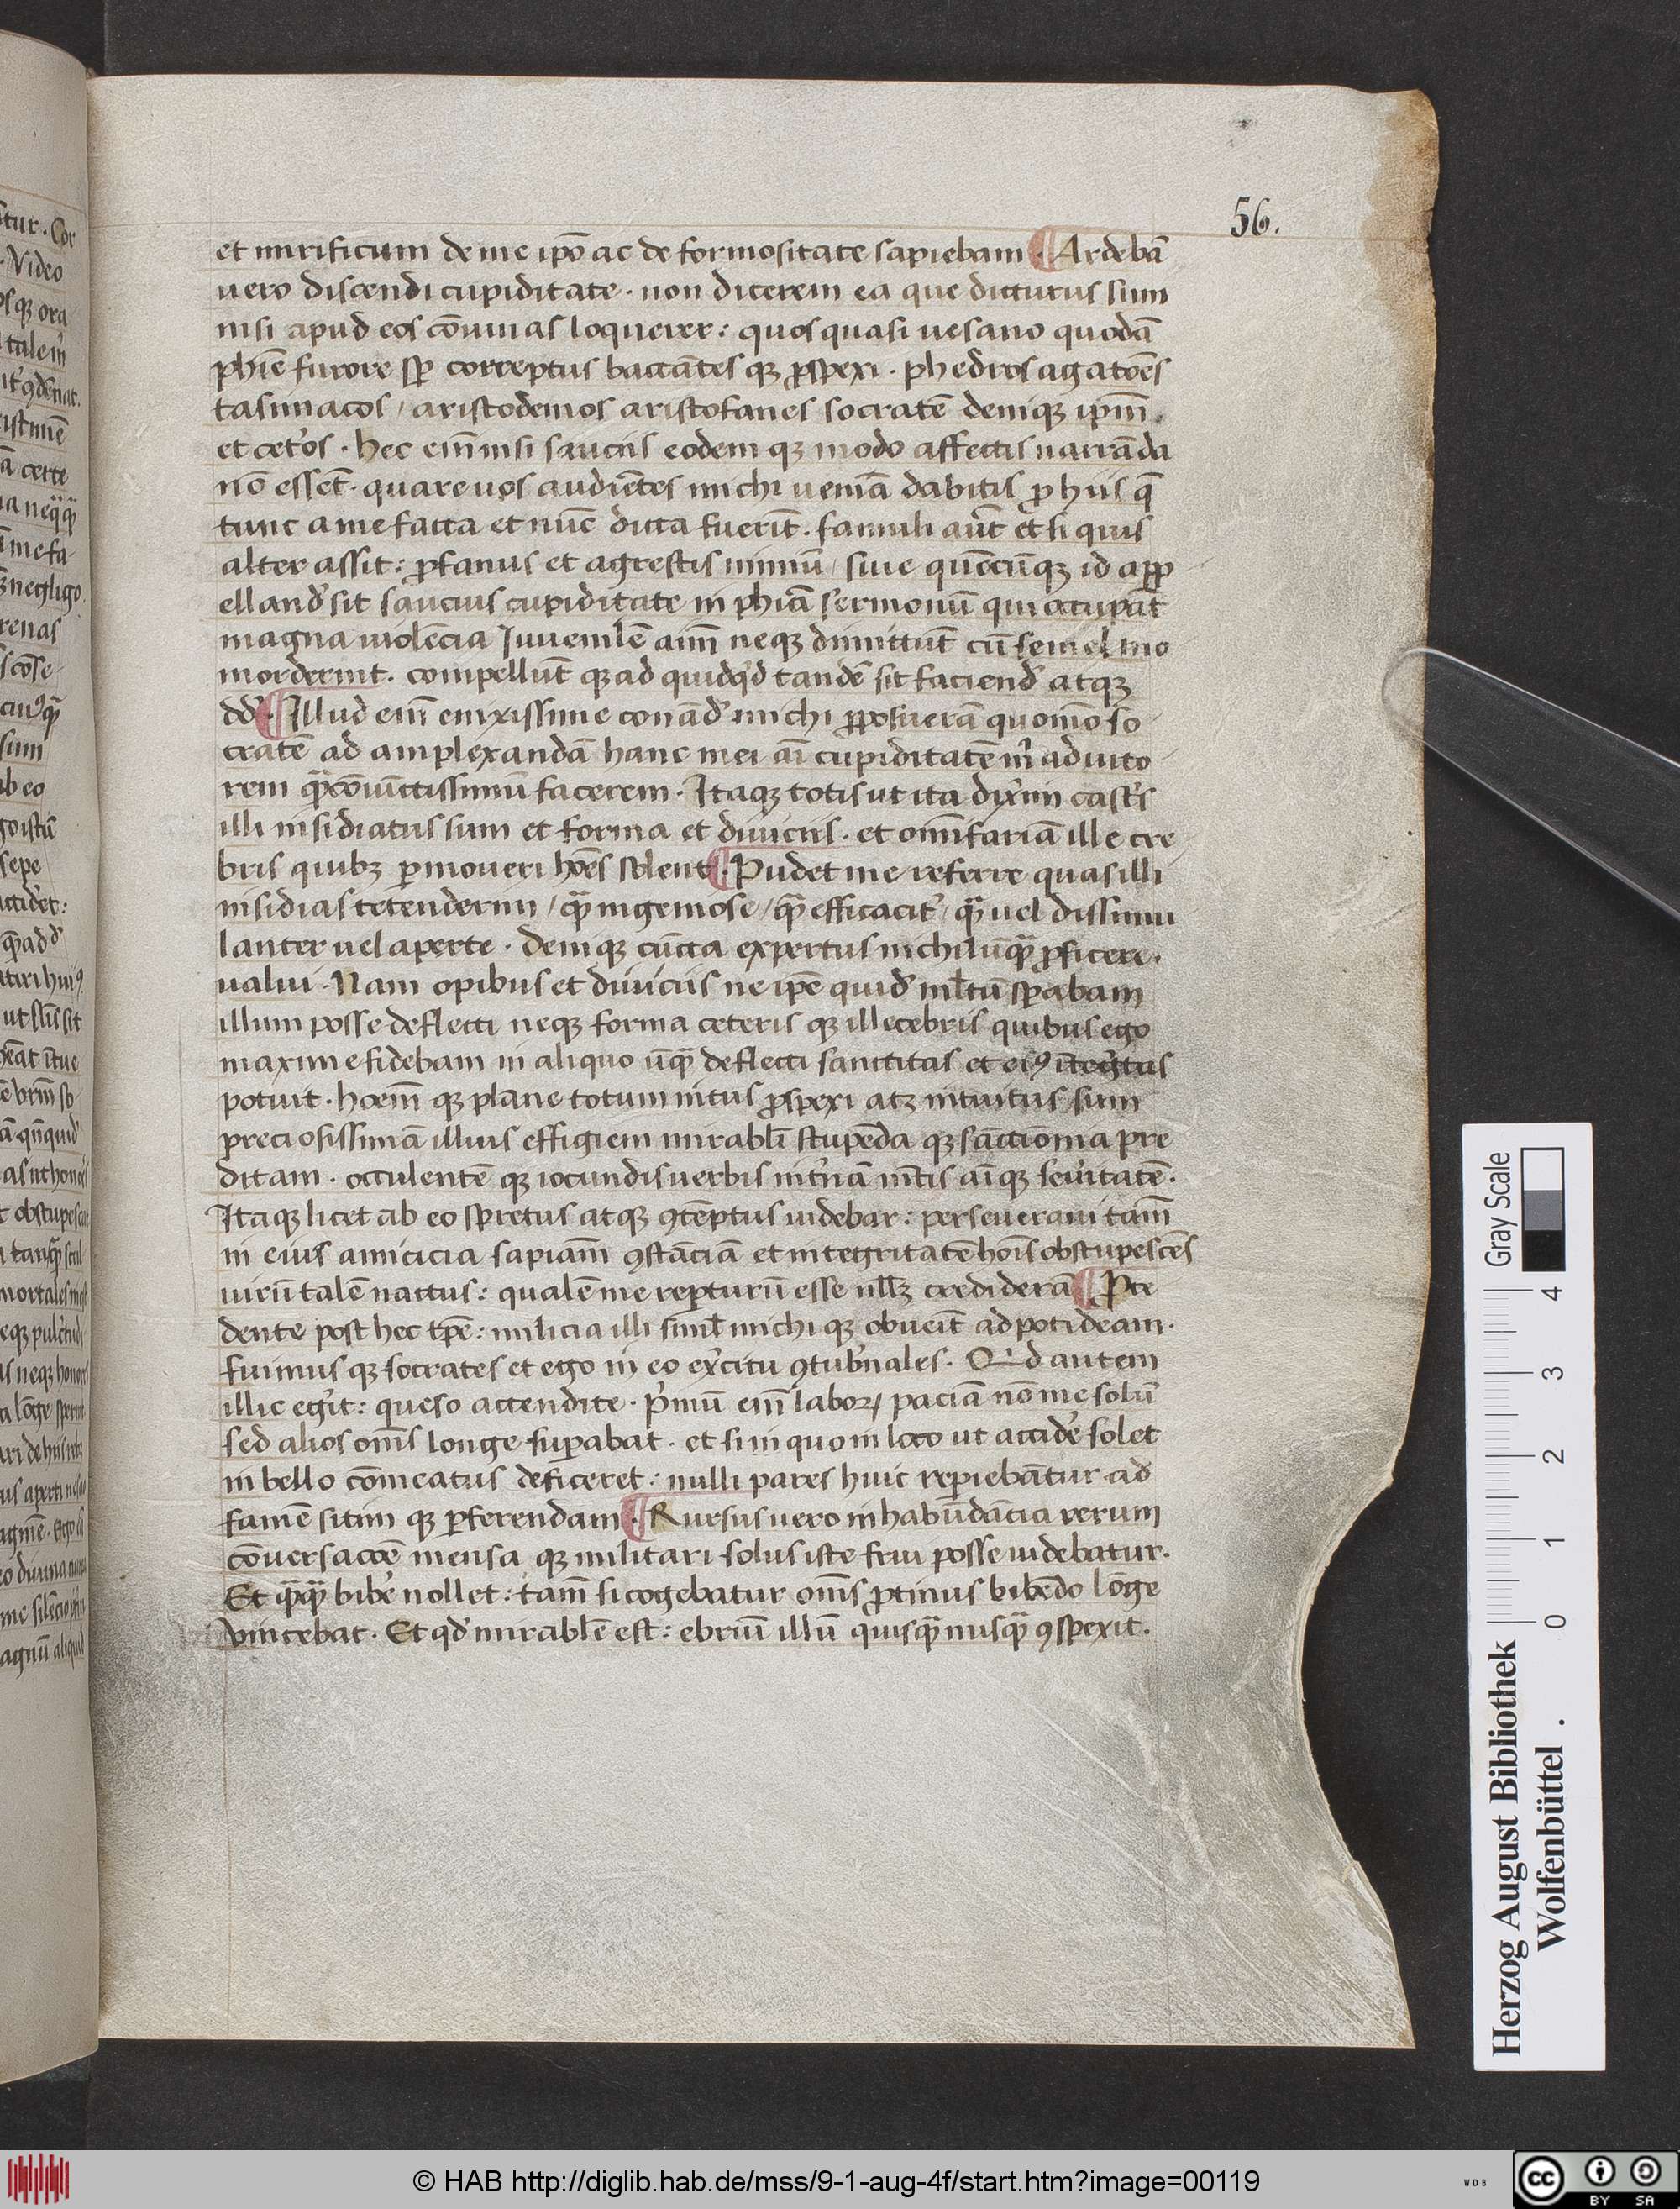 56.
et mirificum de me ip̄o ac de formositate sapiebam · ¶ Ardebā
uero discendi cupiditate · non dicerem ea que dicturus sum
nisi apud eos cōuiuas loquerer: quos quasi uesano quodā
ph̄ie furore sp̄ correptus baccātes qȝ ꝓspexi · phedros agatōes
tasimacos / aristodemos aristofanes socratē deniqȝ ip̄m ·
et cet̉os · hec eīm nisi sauciis eodem qȝ modo affectis narrāda
nō essēt · quare uos audiētes michi ueniā dabitis ꝓ hiis q̄
tunc a me facta et nūc dicta fuerīt · famuli aūt et si quis
alter assit: ꝓfanus et agrestis nimiū / siue quōcūqȝ id app
elland̉ sit saucius cupiditate in ph̄iā sermonū qui occupāt
magna uiolēcia Juuenilē aīm neqȝ dimittūt cū semel mo
morderint · compellūt qȝ ad quidq̉d tandē sit faciend̉ atqȝ
dd̉ · ¶ Illud eīm enixissime conād̉ michi ꝓposuerā quomō so
cratē ad amplexandā hanc mei aī cupiditatē m̉ adiuto
rem q̄ȝcōiūctissimū facerem · Itaqȝ totis ut ita dix̉im cast̉s
illi insidiatus sum et forma et diuiciis · et om̄ifariā ille cre
bris quibȝ ꝑmoueri hoēs solent · ¶ Pudet me referre quas illi
insidias tetenderim / q̄ȝ ingeniose / q̄ȝ efficacit̉ / q̄ȝ uel dissimu
lanter uel aperte · deniqȝ cūcta expertus nichil ūq̄ȝ ꝓficere ·
ualui · Nam opibus et diuiciis ne ip̄e quid̉ ml̄tū sꝑabam
illum posse deflecti neqȝ forma ceteris qȝ illecebris quibus ego
maxime fidebam in aliquo ūq̄ȝ deflecti sanctitas et eiꝰ īteg̉tas
potuit · hoēm qȝ plane totum intus ꝓspexi atȝ intuitus sum
preciosissimā illius effigiem mirabl̄i stupēda qȝ sāctiōnia pre
ditam · occulentē qȝ iocundis uerbis int̉nā mētis aī qȝ seủitatē ·
Itaqȝ licet ab eo spretus atqȝ ꝯtēptus uidebar: perseueraui tam̄
in eius amicicia sapiam̄ ꝯstāciā et integritatē hoīs obstupescēs
uirū talē nactus: qualē me repturū esse nll̄ȝ credideram · ¶ P̉ce
dente post hec tp̄e: milicia illi siml̄ michi qȝ obueīt ad potideam ·
fuimus qȝ socrates et ego in eo ex̉citu ꝯtub̉nales · Qd autem
illic eg̉it: queso attendite · P̉mū eīm laboꝝ paciā nō me solū
sed alios om̄s longe suꝑabat · et si in quo in loco ut accid̉e solet
in bello cōmeatus deficeret: nulli pares huic reꝑiebātur ad
famē sitim qȝ ꝑferendam · ¶ Rursus uero in habūdācia rerum
cōuersacōe mensa qȝ militari solus iste frui posse uidebatur ·
Et q̄ȝq̄ȝ bib̉e nollet: tam̄ si cogebatur om̄s ꝓtinus bibēdo lōge
vincebat · Et qd̉ mirablē est: ebriū illū quisq̄ȝ nusq̄ȝ ꝯspexit ·
Gray Scale
4 3 2 1 0
Herzog August Bibliothek
Wolfenbüttel .
© HAB http://diglib.hab.de/mss/9-1-aug-4f/start.htm?image=00119
WDB
CC BY SA